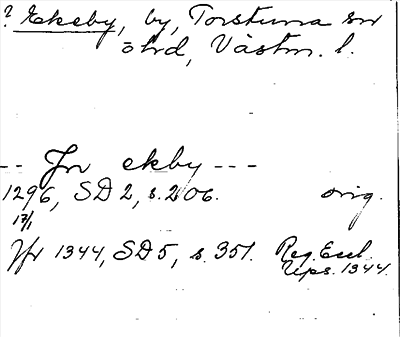 ? Ekeby, by, Torstuna sn
öhd, Västm. l.
-- Jn ekby ---
1296, SD 2, s. 206. orig.
17/1
Jfr 1344, SD 5, s. 351. Reg. Eccl.
Ups. 1344.